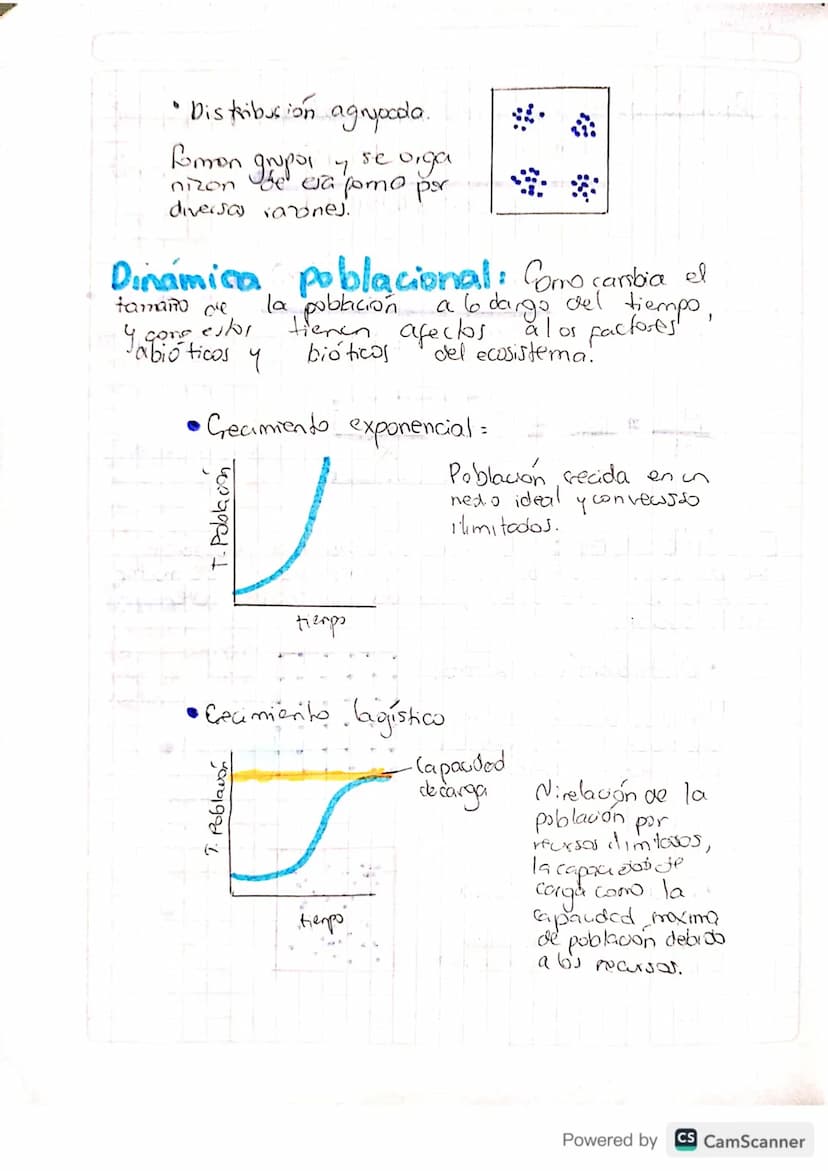 • Distribución agrupada.
Forman grupos y se orga
nizan de esa forma por
diversas razones.
Dinámica poblacional: Como cambia el
tamaño de la población a lo largo del tiempo,
y como estos tienen afectos a los factores
abióticos y bióticos del ecosistema.
• Crecimiento exponencial:
T. Población
tiempo
Población crecida en un
medio ideal y con recursos
ilimitados.
• Crecimiento logístico
T. Población
tiempo
Capacidad
de carga
Nivelación de la
población por
recursos
la capacidad de
carga como la
capacidad maxima
de población debido
a los recursos.
Powered by CS CamScanner